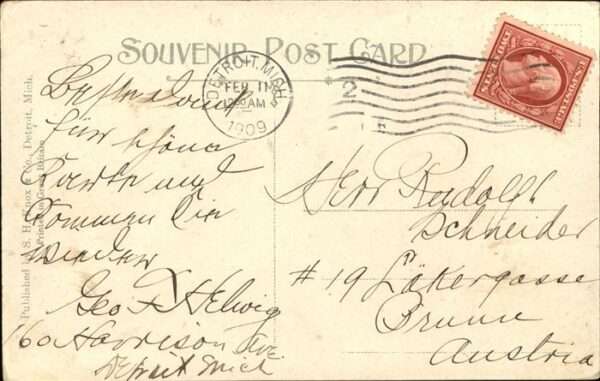 SOUVENIR POST CARD
Published by S. H. Knox & Co., Detroit, Mich.
DETROIT, MICH.
FEB 11
12 30 AM
1909
2
Besten Dank
für schöne
Karte und
Kommen Sie
wieder
Geo F Helwig
160 Harrison Ave.
Detroit Mich
Herr Rudolph
Schneider
# 19 Bäkergasse
Brunn
Austria